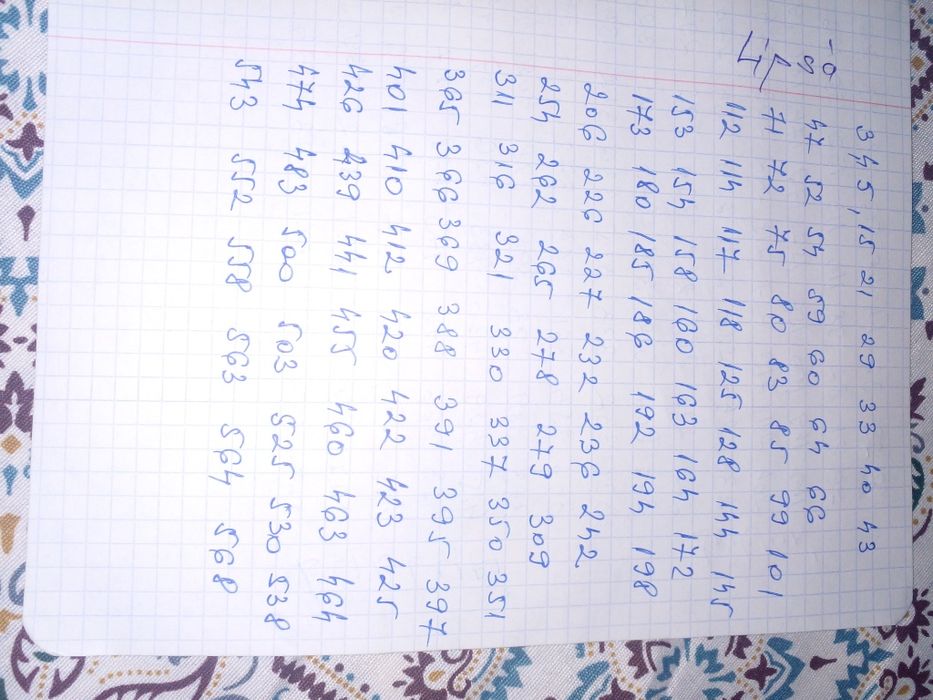 3 4 5, 15 21 29 33 40 43
47 52 54 59 60 64 66
71 72 75 80 83 85 99 101
112 114 117 118 125 128 144 145
153 154 158 160 163 164 172
173 180 185 186 192 194 198
206 226 227 232 236 242
254 262 265 278 279 309
311 316 321 330 337 350 351
365 366 369 388 391 395 397
401 410 412 420 422 423 425
426 439 441 455 460 463 464
474 483 500 503 525 530 538
543 552 558 563 564 568